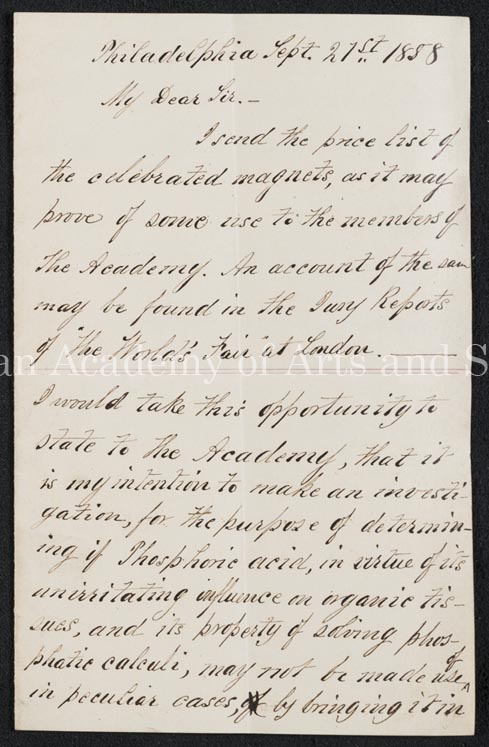 Philadelphia Sept. 21st. 1858
My Dear Sir. —
I send the price list of
the celebrated magnets, as it may
prove of some use to the members of
the Academy. An account of the same
may be found in the Jury Reports
of "the World's Fair" at London. ———
an Academy of Arts and S
I would take this opportunity to
state to the Academy, that it
is my intention to make an investi-
gation, for the purpose of determin-
ing if Phosphoric acid, in virtue of its
unirritating influence on organic tis-
sues, and its property of solving phos-
phatic calculi, may not be made use of
in peculiar cases, by bringing it in